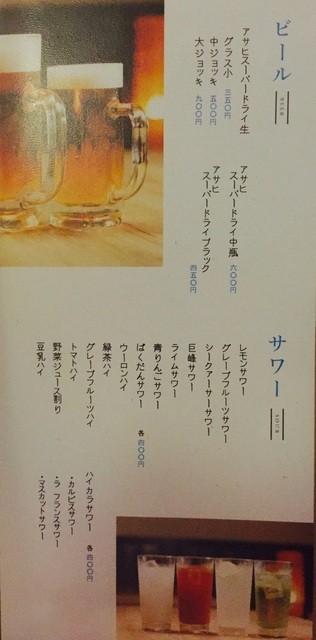 ビール
BEER
アサヒスーパードライ生
グラス小 三五〇円
中ジョッキ 五〇〇円
大ジョッキ 九〇〇円
アサヒ
スーパードライ中瓶 六〇〇円
アサヒ
スーパードライブラック 四五〇円
サワー
SOUR
レモンサワー
グレープフルーツサワー
シークアーサーサワー
巨峰サワー
ライムサワー
青りんごサワー
ばくだんサワー 各 四〇〇円
ウーロンハイ
緑茶ハイ
グレープフルーツハイ
トマトハイ
野菜ジュース割り
豆乳ハイ
ハイカラサワー 各 四〇〇円
・カルピスサワー
・ラ フランスサワー
・マスカットサワー